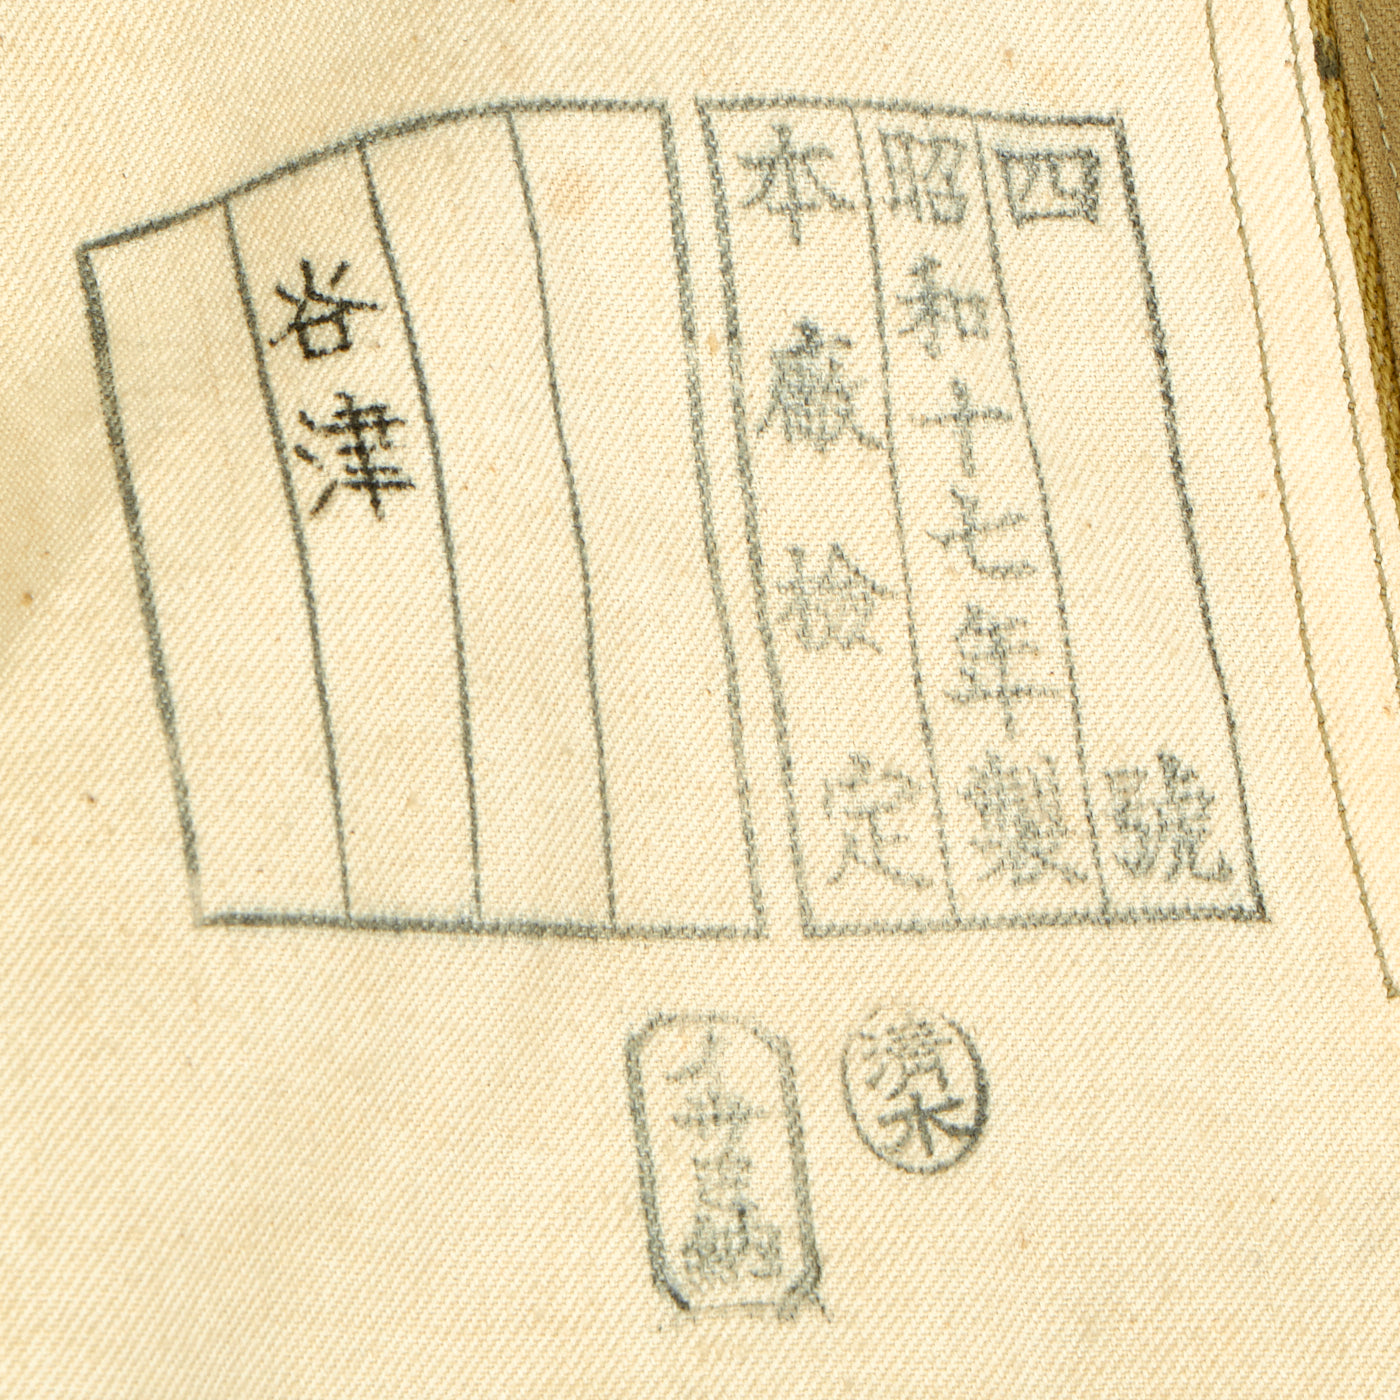 四號
昭和十七年製
本廠檢定
清水